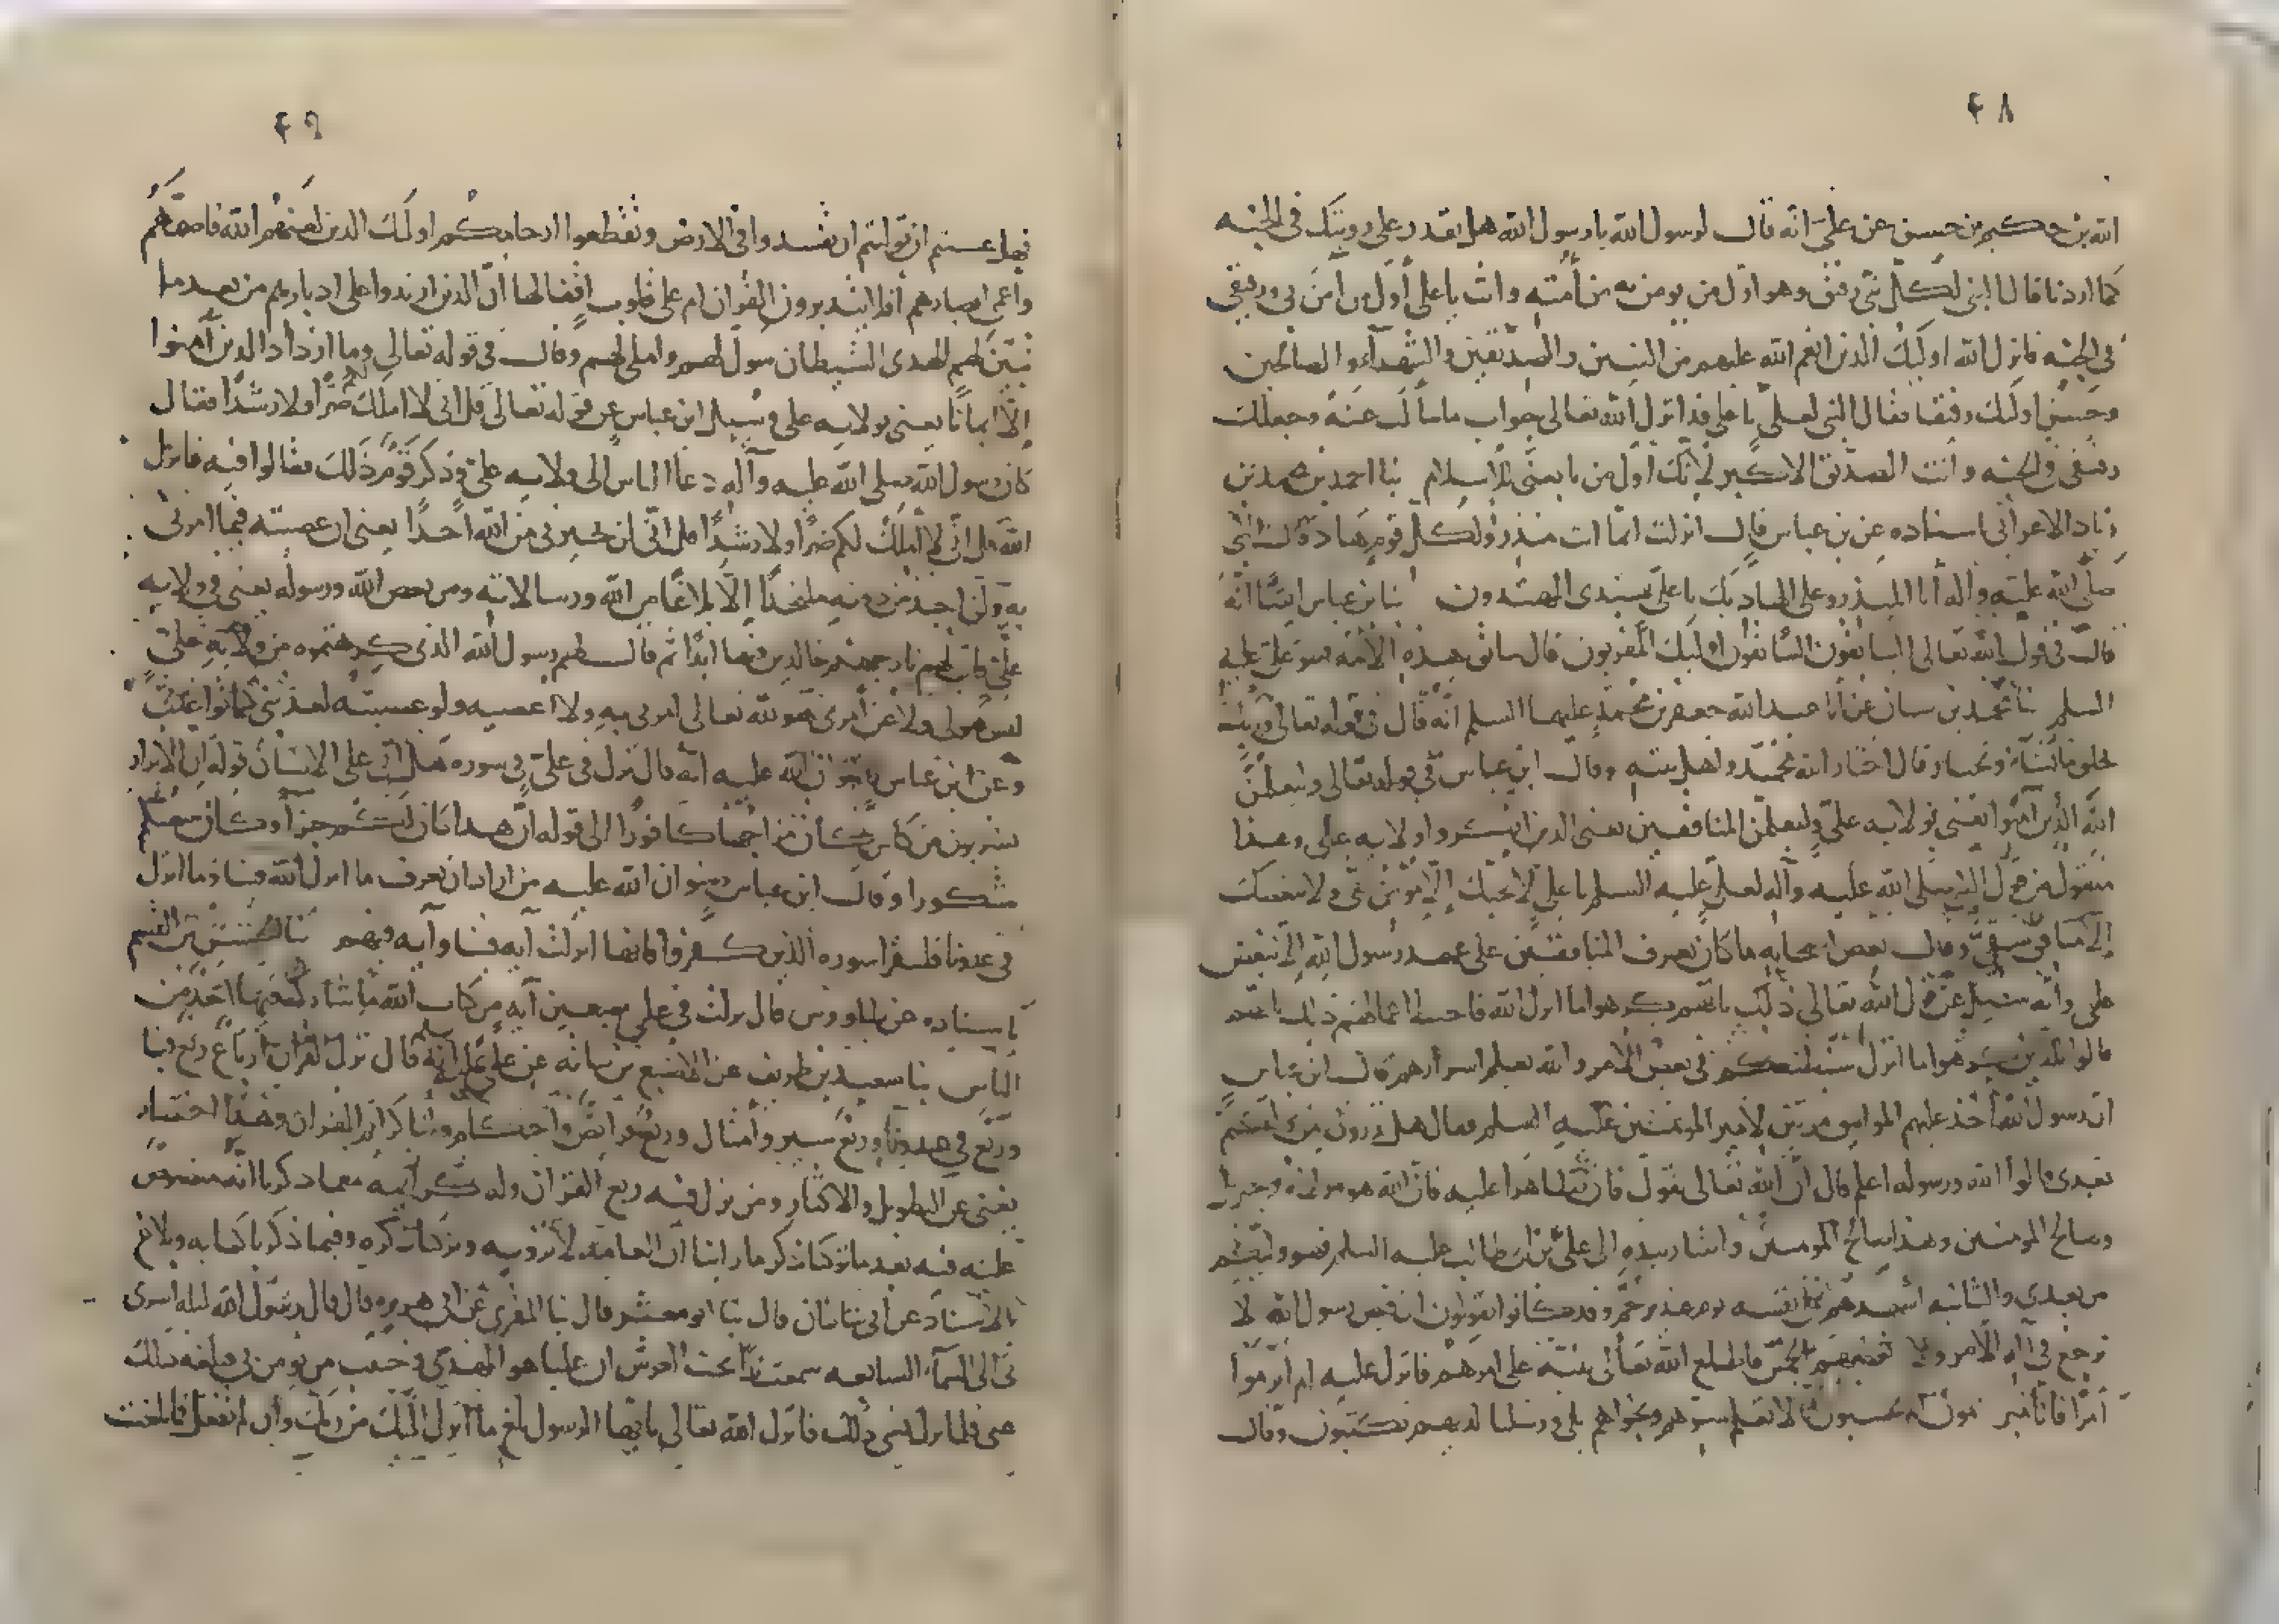 ٤٨
الله بن حكيم بن حسين عن علي انه قال لرسول الله يا رسول الله هل نقدر على رويتك في الجنه
كما اردنا قال ان لكل نبي رفيق وهو اول من يومن به من أمته وانت يا علي أول من آمن بي ورفيقي
في الجنه فانزل الله اوليك الذين انعم الله عليهم من النبيين والصديقين والشهدآء والصالحين
وحسن اوليك رفيقا فقال النبي لعلي يا علي قد انزل الله تعالى جواب ما سألت عنه وجعلك
رفيقي في الجنه وانت الصديق الاكبر لانك اول من الاسلام نا احمد بن محمد بن
زياد الاعرابي باسناده عن بن عباس قال انزلت انما انت منذر ولكل قوم هاد قال النبي
صلى الله عليه وآله أنا المنذر وعلي الهاد بك يا علي يهتدى المهتدون نا بن عباس ايضا انه
قال في قول الله تعالى السابقون السابقون اوليك المقربون قال سابق هذه الامه هو علي عليه
السلم نا محمد بن سنان عن ابا عبد الله جعفر بن محمد عليهما السلم انه قال في قوله تعالى وربك
يخلق ما يشاء ويختار قال اختار الله محمد واهل بيته وقال ابن عباس في قوله تعالى وليعلمن
الله الذين آمنوا يعني بولايه علي وليعلمن المنافقين يعني الذين انكروا ولايه علي وهذا
منقول من قول النبي صلى الله عليه وآله لعلي عليه السلم يا علي لا يحبك إلا مؤمن تقي ولا يبغضك
إلا منافق شقي وقال بعض اصحابه ما كان يعرف المنافقين على عهد رسول الله إلا ببغض
علي وأنه سئل عن قول الله تعالى ذلك بانهم كرهوا ما انزل الله فاحبط اعمالهم ذلك بانهم
قالوا للذين كرهوا ما انزل سنطيعكم في بعض الأمر والله يعلم اسرارهم قال ابن عباس
ان رسول الله أخذ عليهم المواثيق مرتين لامير المومنين عليه السلم فقال هل تدرون من وليكم
بعدي قالوا الله ورسوله اعلم قال ان الله تعالى يقول فان تظاهرا عليه فان الله هو مولاه وجبريل
وصالح المومنين وهذا صالح المومنين وأشار بيده الى علي بن ابي طالب عليه السلم فهو وليكم
من بعدي والثانيه اشهدهم نفسه يوم غدير خم وقد كانوا يقولون ان قبض رسول الله لا
نرجع في آله الأمر ولا نعطيهم الخمس فاطلع الله تعالى نبيه على امرهم فانزل عليه ام أبرموا
أمرًا فانا مبرمون ام يحسبون انا لا نعلم سرهم ونجواهم بلى ورسلنا لديهم يكتبون وقال
٤٩
فهل عسيتم ان توليتم ان تفسدوا في الارض وتقطعوا ارحامكم اوليك الذين لعنهم الله فاصمهم
واعمى ابصارهم أفلا يتدبرون القرآن ام على قلوب اقفالها ان الذين ارتدوا على ادبارهم من بعد ما
تبين لهم الهدى الشيطان سول لهم واملى لهم وقال في قوله تعالى وما ازداد الذين آمنوا
إلا ايمانا يعني بولايه علي وسيل ابن عباس عن قوله تعالى قل اني لا املك لكم ضرا ولا رشدا فقال
كان رسول الله صلى الله عليه وآله دعا الناس الى ولايه علي فذكر قوم ذلك فقالوا فيه فانزل
الله قل اني لا املك لكم ضرا ولا رشدا قل اني لن يجيرني من الله أحدا يعني ان عصيته فيما امرني
به ولن اجد من دونه ملتحدا إلا بلاغا من الله ورسالاته ومن يعص الله ورسوله يعني في ولايه
علي فان لهم نار جهنم خالدين فيها ابدا ثم قال لهم رسول الله الذي كرهتموه من ولايه علي
ليس هو لي ولا عن أمري هو لله تعالى امرني به ولا اعصيه ولو عصيته لعذبني
وعن ابن عباس رضوان الله عليه انه قال نزل في علي في سوره هل اتى على الانسان قوله ان الابرار
يشربون من كاس كان مزاجها كافورا الى قوله ان هذا كان لكم جزآ وكان سعيكم
مشكورا وقال ابن عباس رضوان الله عليه من اراد ان يعرف ما انزل الله فينا وما انزل
في عدونا فليقرأ سوره الذين كفروا فانها انزلت آيه فينا وآيه فيهم نا
باسناده عن طاووس قال نزلت في علي سبعين آيه من كتاب الله ما شاركه فيها احد من
الناس نا سعيد بن طريف عن الاصبغ بن نباته عن علي عليه السلم انه قال نزل القرآن أرباع ربع فينا
وربع في عدونا وربع سير وأمثال وربع فرائض وأحكام ولنا كرائم القران وهذا اختصار
يغني عن التطويل والاكثار ومن نزل فيه ربع القرآن وله كرائمه فما ذكرنا انه منصوص
عليه فيه بعد ما تركنا ذكر ما راينا ان العامه لا ترويه وتركنا ذكره وفيما ذكرنا كفايه وبلاغ
بالاسناد عن قال نا ابو معشر قال نا المقري عن ابي هريره قال قال رسول الله ليله أسري
بي الى السمآء السابعه سمعت ندا تحت العرش ان عليا هو الهدى وحبيب من يومن بي فبلغه ذلك
عني فلما نزل نسي ذلك فانزل الله تعالى يا ايها الرسول بلغ ما أنزل اليك من ربك وان لم تفعل فما بلغت